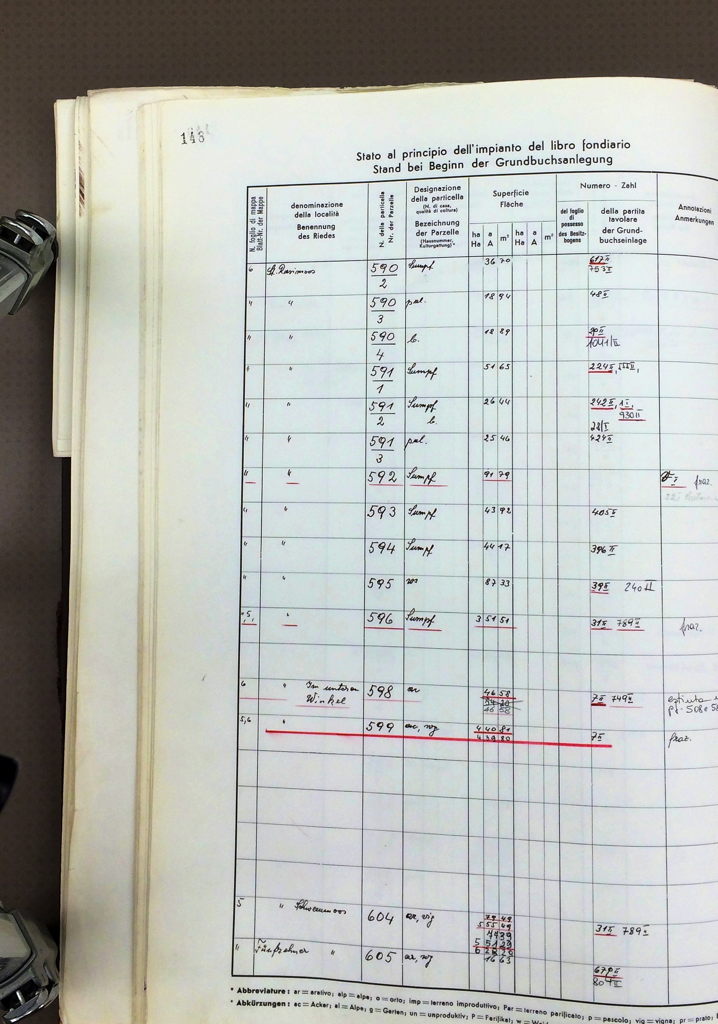 143
Stato al principio dell'impianto del libro fondiario
Stand bei Beginn der Grundbuchsanlegung
N. foglio di mappa
Blatt-Nr. der Mappe
denominazione
della località
Benennung
des Riedes
N. della particella
Nr. der Parzelle
Designazione
della particella
(N. di casa,
qualità di coltura)
Bezeichnung
der Parzelle
(Hausnummer,
Kulturgattung)*
Superficie
Fläche
ha a m² ha a m²
Ha A Ha A
Numero - Zahl
del foglio
di
possesso
des Besitz-
bogens
della partita
tavolare
der Grund-
buchseinlage
Annotazioni
Anmerkungen
6 590/2 Sumpf 36 70 617 II
753 II
" " 590/3 pal. 18 94 48 II
" " 590/4 b. 18 89
1041/II
" " 591/1 Sumpf 51 65 224 II
" " 591/2 Sumpf b. 26 44 242 II, 1 I,
930 II
28/I
" " 591/3 pal. 25 46 424 II
" " 592 Sumpf 91 79 fraz.
" 593 Sumpf 43 92 405 II
" " 594 Sumpf 44 17 396 II
" " 595 87 33 39 II 240 II
5, " 596 Sumpf 3 51 51 31 II 789 II fraz.
6 " Im unteren
Winkel 598 ar 46 58 7 II 749 II estinta
5,6 " 599 4 40 81 7 II fraz.
4 39 80
5 " 604 ar, vig 79 49 31 II 789 II
5 55 49
" " 605 ar, 16 63 679 II
804 II
* Abbreviature: ar = arativo; alp = alpe; o = orto; imp = terreno improduttivo; Par = terreno parificato; p = pascolo; vig = vigna; pr = prato;
* Abkürzungen: ac = Acker; al = Alpe; g = Garten; un = unproduktiv; P = Parifikat; w =